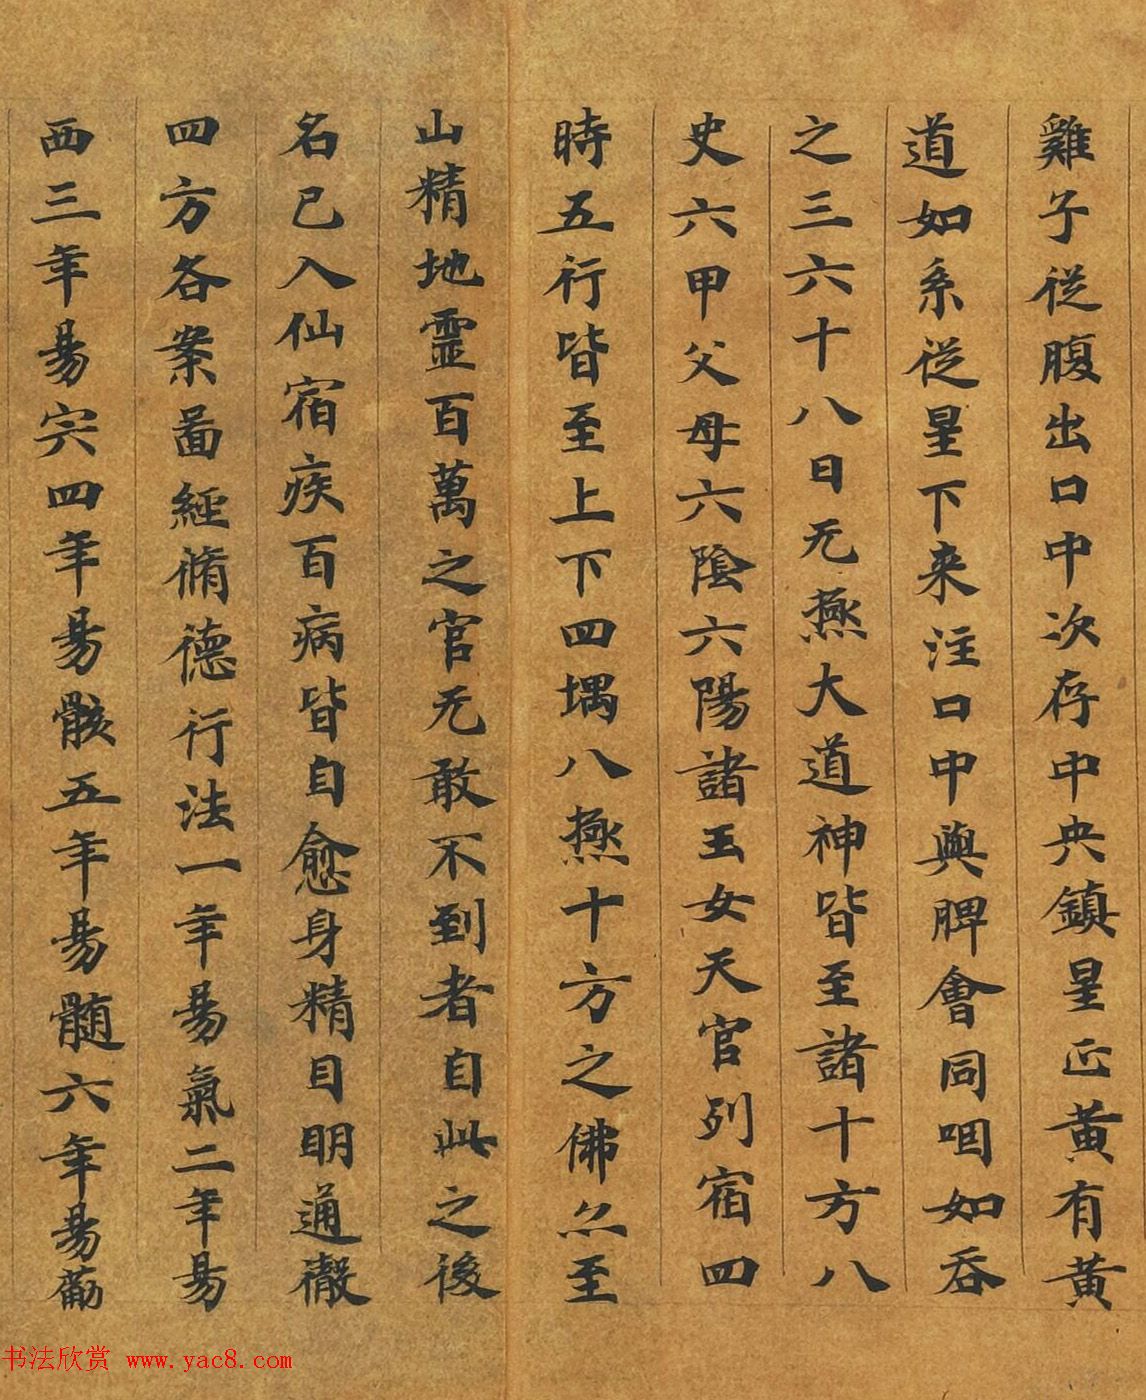 雞子從腹出口中次存中央鎮星正黃有黃
道如系從星下来注口中與脾會同咽如吞
之三六十八日无極大道神皆至諸十方八
史六甲父母六陰六陽諸玉女天官列宿四
時五行皆至上下四堣八極十方之佛亦至
山精地靈百萬之官无敢不到者自此之後
名已入仙宿疾百病皆自愈身精目明通徹
四方各案啚經脩德行法一年易氣二年易
血三年易宍四年易骸五年易髓六年易筋
书法欣赏 www.yac8.com